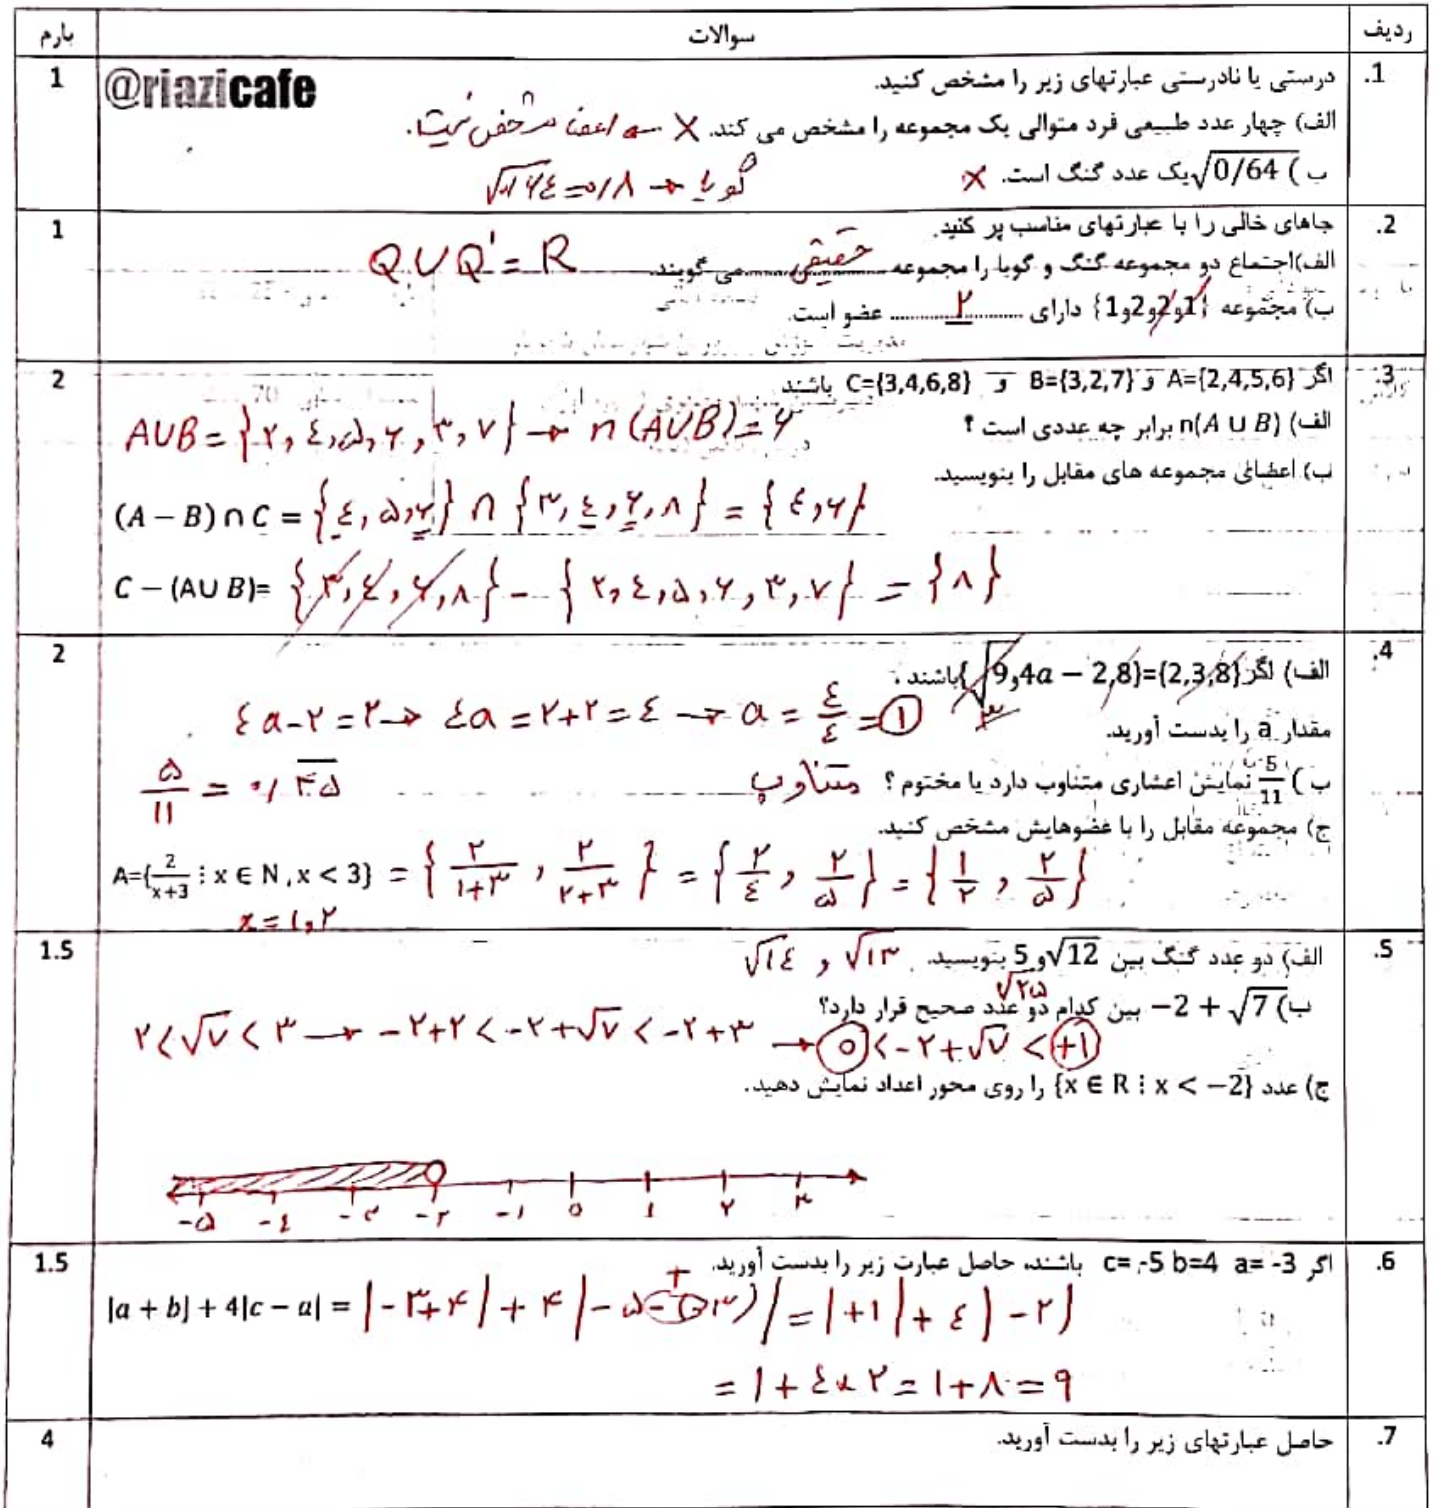 ردیف سوالات بارم
1. درستی یا نادرستی عبارتهای زیر را مشخص کنید. 1
@riazicafe
الف) چهار عدد طبیعی فرد متوالی یک مجموعه را مشخص می کند. X اعضا مشخص نیست.
ب) √0/64 یک عدد گنگ است. X
√٠/٦٤ = ٠/٨ → گویا
2. جاهای خالی را با عبارتهای مناسب پر کنید. 1
الف)اجتماع دو مجموعه گنگ و گویا را مجموعه حقیقی می گویند. Q∪Q'=R
ب) مجموعه {1و2و2و1} دارای ٢ عضو است.
3. اگر A={2,4,5,6} و B={3,2,7} و C={3,4,6,8} باشند 2
الف) n(A ∪ B) برابر چه عددی است ؟
A∪B={٢,٤,۵,۶,٣,٧} → n(A∪B)=۶
ب) اعضای مجموعه های مقابل را بنویسید.
(A − B) ∩ C = {٤,۵,۶} ∩ {٣,٤,۶,٨} = {٤,۶}
C − (A∪ B)= {٣,٤,۶,٨} - {٢,٤,۵,۶,٣,٧} = {٨}
4. الف) اگر {2,3,8}={√9,4a − 2,8} باشند ، 2
٣
مقدار a را بدست آورید.
٤a-٢=٢ → ٤a=٢+٢=٤ → a=٤/٤=١
ب) 5/11 نمایش اعشاری متناوب دارد یا مختوم ؟ متناوب
۵/١١ = ٠/۴۵
ج) مجموعه مقابل را با عضوهایش مشخص کنید.
A={2/(x+3) ⋮ x ∈ N , x < 3} = {٢/(١+٣) , ٢/(٢+٣)} = {٢/٤ , ٢/۵} = {١/٢ , ٢/۵}
x=١,٢
5. الف) دو عدد گنگ بین √12 و 5 بنویسید. √١٣ , √١٤ 1.5
√٢۵
ب) −2 + √7 بین کدام دو عدد صحیح قرار دارد؟
٢<√٧<٣ → -٢+٢<-٢+√٧<-٢+٣ → ٠<-٢+√٧<+١
ج) عدد {x ∈ R ⋮ x < −2} را روی محور اعداد نمایش دهید.
-۵ -٤ -٣ -٢ -١ ٠ ١ ٢ ٣
6. اگر a= -3 b=4 c= -5 باشند، حاصل عبارت زیر را بدست آورید. 1.5
|a + b| + 4|c − a| = |-٣+۴|+۴|-۵-(-٣)|=|+١|+٤|-٢|
=١+٤×٢=١+٨=٩
7. حاصل عبارتهای زیر را بدست آورید. 4